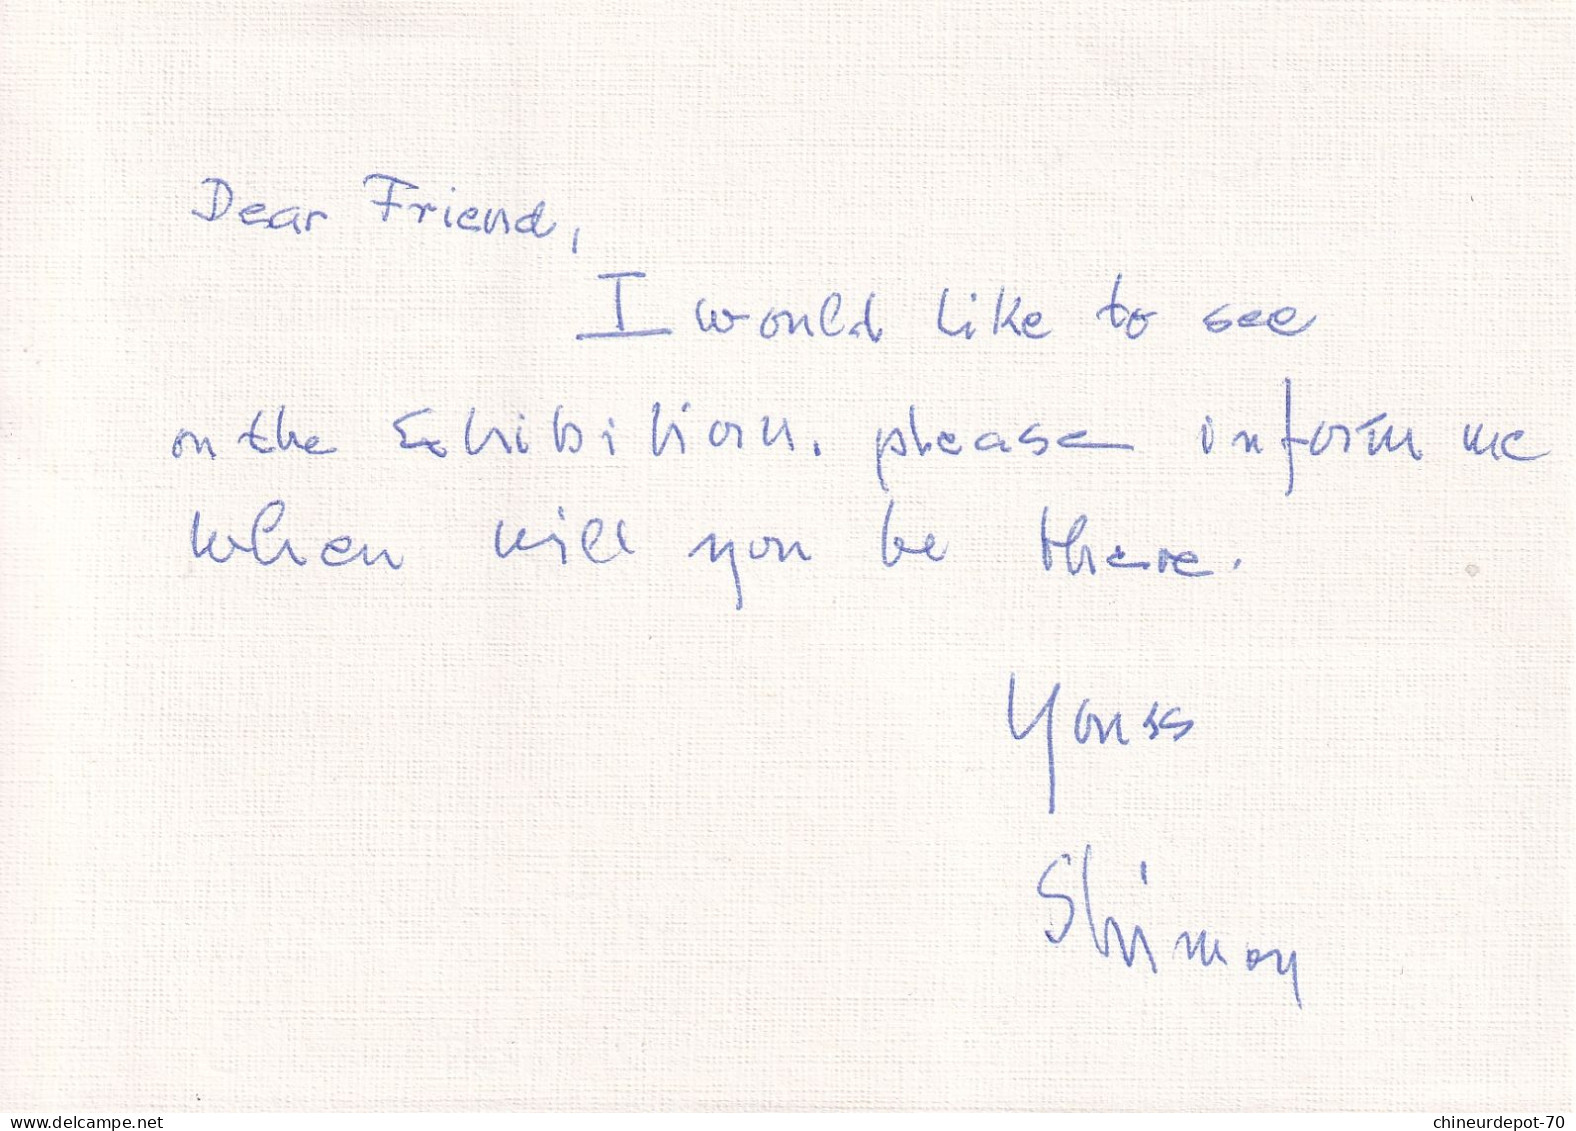 Dear Friend,
I would like to see
on the Exhibition. please inform me
when will you be there.
Yours
Shimon
delcampe.net
chineurdepot-70